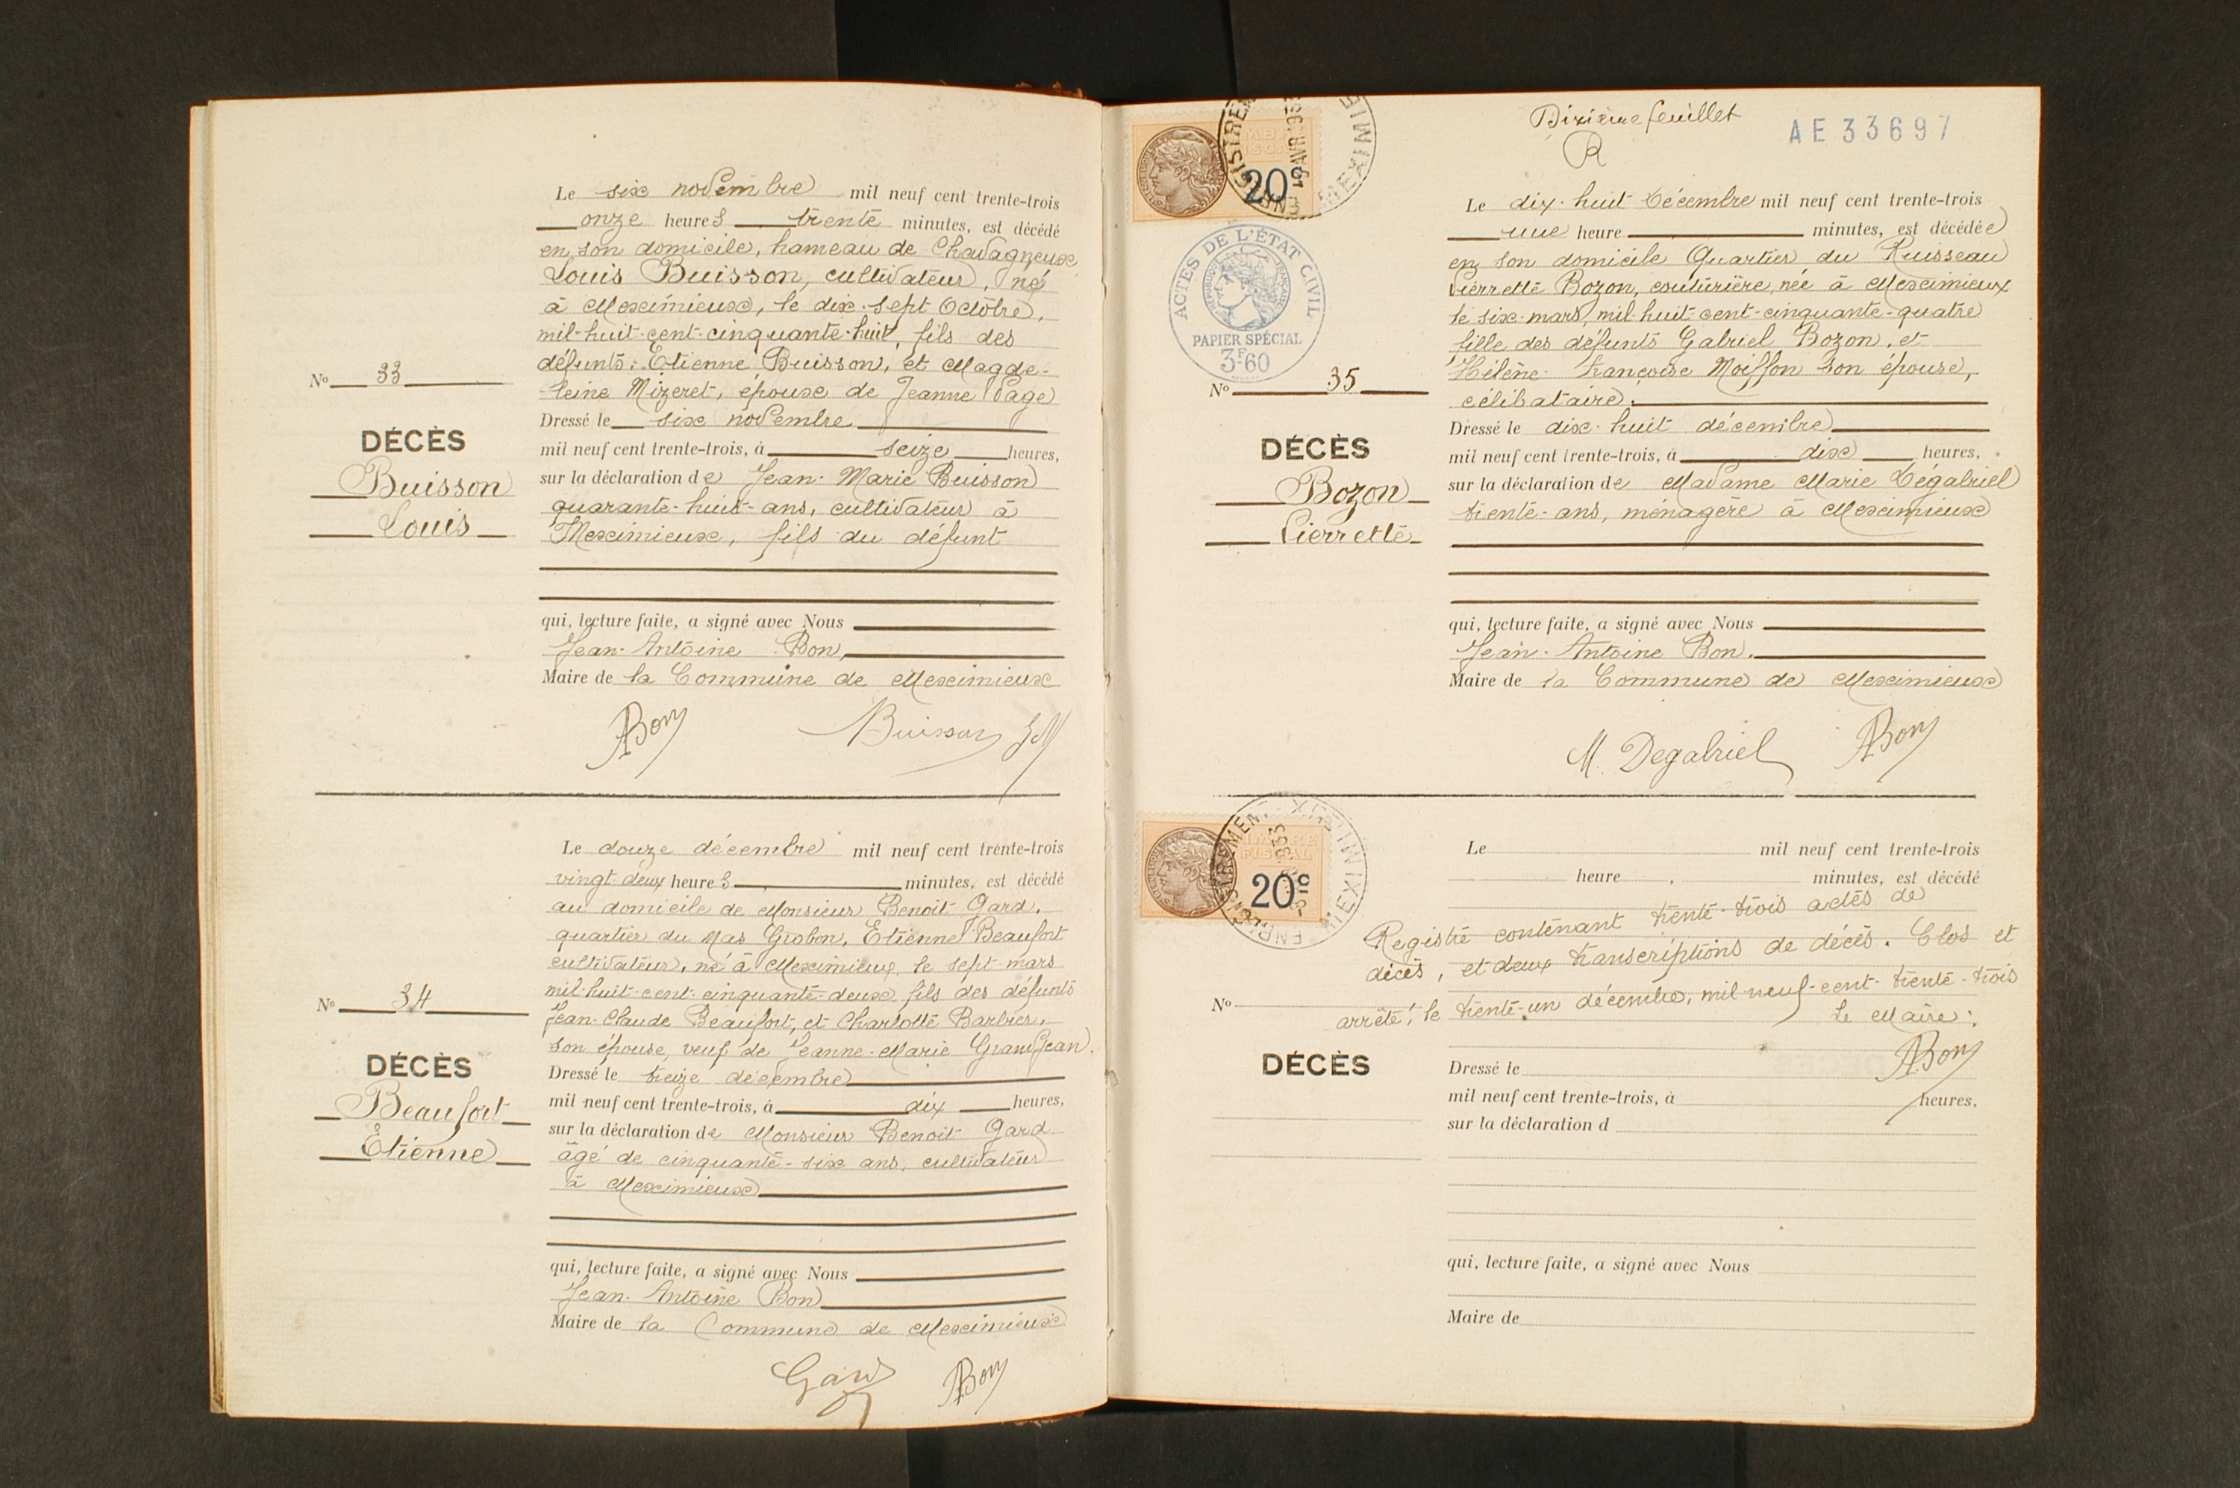 Le six novembre mil neuf cent trente-trois
onze heures trente minutes, est décédé
en son domicile, hameau de Chavagneux
Louis Buisson, cultivateur, né
à Meximieux, le dix-sept Octobre,
mil-huit-cent-cinquante-huit, fils des
défunts: Etienne Buisson, et Magde-
-leine Mizeret, épouse de Jeanne Page
N° 33
Dressé le six novembre
DÉCÈS
mil neuf cent trente-trois, à seize heures,
Buisson
sur la déclaration de Jean-Marie Buisson
quarante-huit-ans, cultivateur à
Louis
Meximieux, fils du défunt
qui, lecture faite, a signé avec Nous
Jean-Antoine Bon,
Maire de la Commune de Meximieux
ABon Buisson JM
Le douze décembre mil neuf cent trente-trois
vingt-deux heures minutes, est décédé
au domicile de Monsieur Benoit Gard,
quartier du Mas Grobon, Etienne Beaufort
cultivateur, né à Meximieux, le sept mars
mil-huit-cent-cinquante-deux, fils des défunts
N° 34
Jean-Claude Beaufort, et Charlotte Barbier,
son épouse, veuf de Jeanne-Marie GrandJean.
DÉCÈS
Dressé le treize décembre
Beaufort
mil neuf cent trente-trois, à dix heures,
sur la déclaration de Monsieur Benoit Gard
Etienne
âgé de cinquante-six ans, cultivateur
à Meximieux
qui, lecture faite, a signé avec Nous
Jean-Antoine Bon
Maire de la Commune de Meximieux
Gard ABon
Dixième feuillet
R
AE33697
20c
ENREGISTREMENT
MEXIMIEUX
ACTES DE L'ÉTAT CIVIL
PAPIER SPÉCIAL
3F60
Le dix-huit Décembre mil neuf cent trente-trois
une heure minutes, est décédée
en son domicile Quartier du Ruisseau
Pierrette Bozon, couturière, née à Meximieux
le six-mars, mil-huit-cent-cinquante-quatre
fille des défunts Gabriel Bozon, et
Hélène-Françoise Moiffon son épouse,
N° 35
célibataire.
Dressé le dix-huit décembre
DÉCÈS
mil neuf cent trente-trois, à dix heures,
Bozon
sur la déclaration de Madame Marie Dégabriel
trente-ans, ménagère à Meximieux
Pierrette
qui, lecture faite, a signé avec Nous
Jean-Antoine Bon.
Maire de la Commune de Meximieux
M. Degabriel ABon
20c
ENREGISTREMENT
MEXIMIEUX
Le mil neuf cent trente-trois
heure minutes, est décédé
Registre contenant trente-trois actes de
décès, et deux transcriptions de décès. Clos et
arrêté, le trente-un décembre, mil-neuf-cent-trente-trois
Le Maire:
N°
ABon
DÉCÈS
Dressé le
mil neuf cent trente-trois, à heures,
sur la déclaration d
qui, lecture faite, a signé avec Nous
Maire de